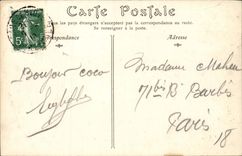 Carte Postale
Tous les pays étrangers n'acceptent pas la correspondance au recto.
Se renseigner à la poste.
Correspondance
Adresse
Bonjour coco
Madame Maheu
71bis Bd Barbès
Paris
18